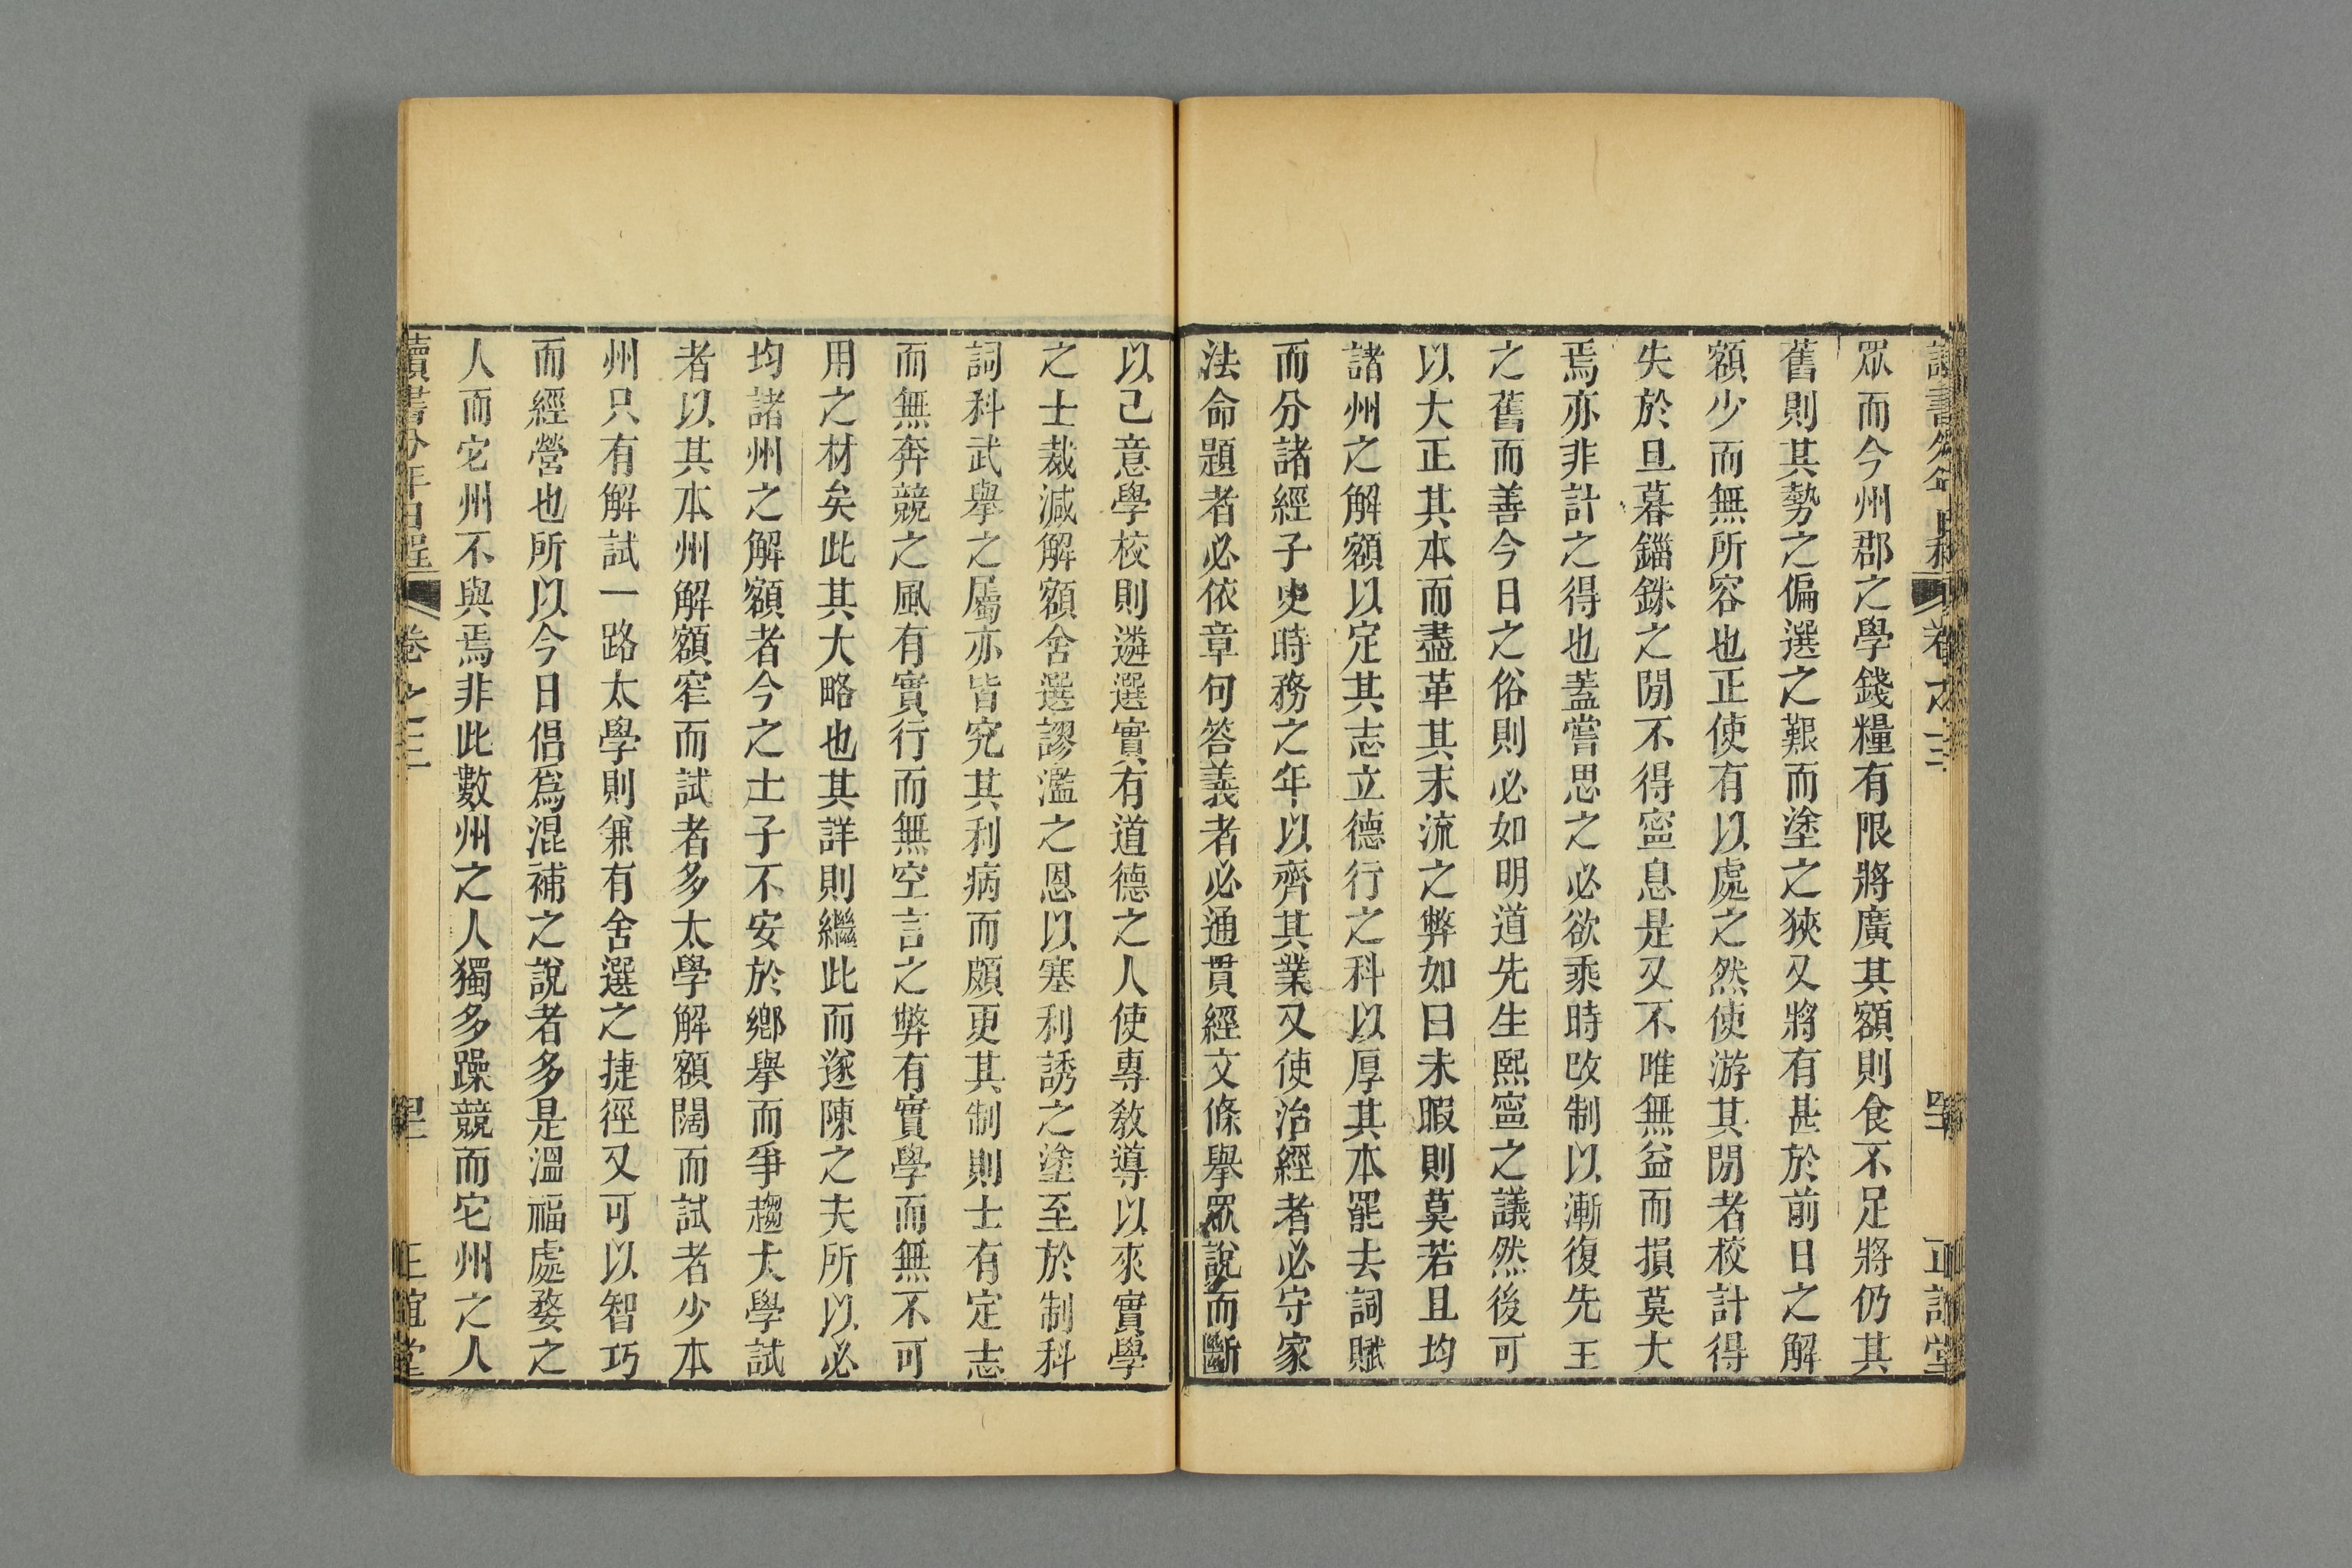 讀書分年日程 卷之三 正誼堂
眾而今州郡之學錢糧有限將廣其額則食不足將仍其
舊則其勢之偏選之艱而塗之狹又將有甚於前日之解
額少而無所容也正使有以處之然使游其閒者校計得
失於旦暮錙銖之閒不得寍息是又不唯無益而損莫大
焉亦非計之得也蓋嘗思之必欲乘時改制以漸復先王
之舊而善今日之俗則必如明道先生熙寍之議然後可
以大正其本而盡革其末流之弊如曰未暇則莫若且均
諸州之解額以定其志立德行之科以厚其本罷去詞賦
而分諸經子史時務之年以齊其業又使治經者必守家
法命題者必依章句答義者必通貫經文條舉眾說而斷
以己意學校則遴選實有道德之人使專敎導以來實學
之士裁減解額舍選謬濫之恩以塞利誘之塗至於制科
詞科武舉之屬亦皆究其利病而頗更其制則士有定志
而無奔競之風有實行而無空言之弊有實學而無不可
用之材矣此其大略也其詳則繼此而遂陳之夫所以必
均諸州之解額者今之士子不安於鄉舉而爭趨大學試
者以其本州解額窄而試者多太學解額闊而試者少本
州只有解試一路太學則兼有舍選之捷徑又可以智巧
而經營也所以今日倡爲混補之說者多是溫福處婺之
人而它州不與焉非此數州之人獨多躁競而它州之人
讀書分年日程 卷之三 正誼堂